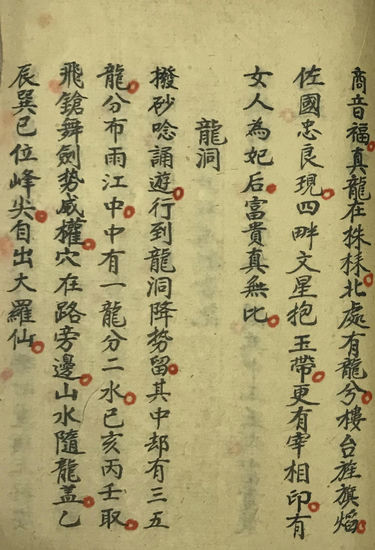 商音福真龍在株樣北處有龍兮樓台旌旗熖
佐國忠良現四畔文星抱玉帶更有宰相印有
女人為妃后富貴真無比
龍洞
撥砂唸誦遊行到龍洞降勢留其中却有三五
龍分布雨江中中有一龍分二水巳亥丙壬取
飛鎗舞劍勢威權穴在路旁邊山水隨龍蓋乙
辰巽巳位峰尖自出大羅仙